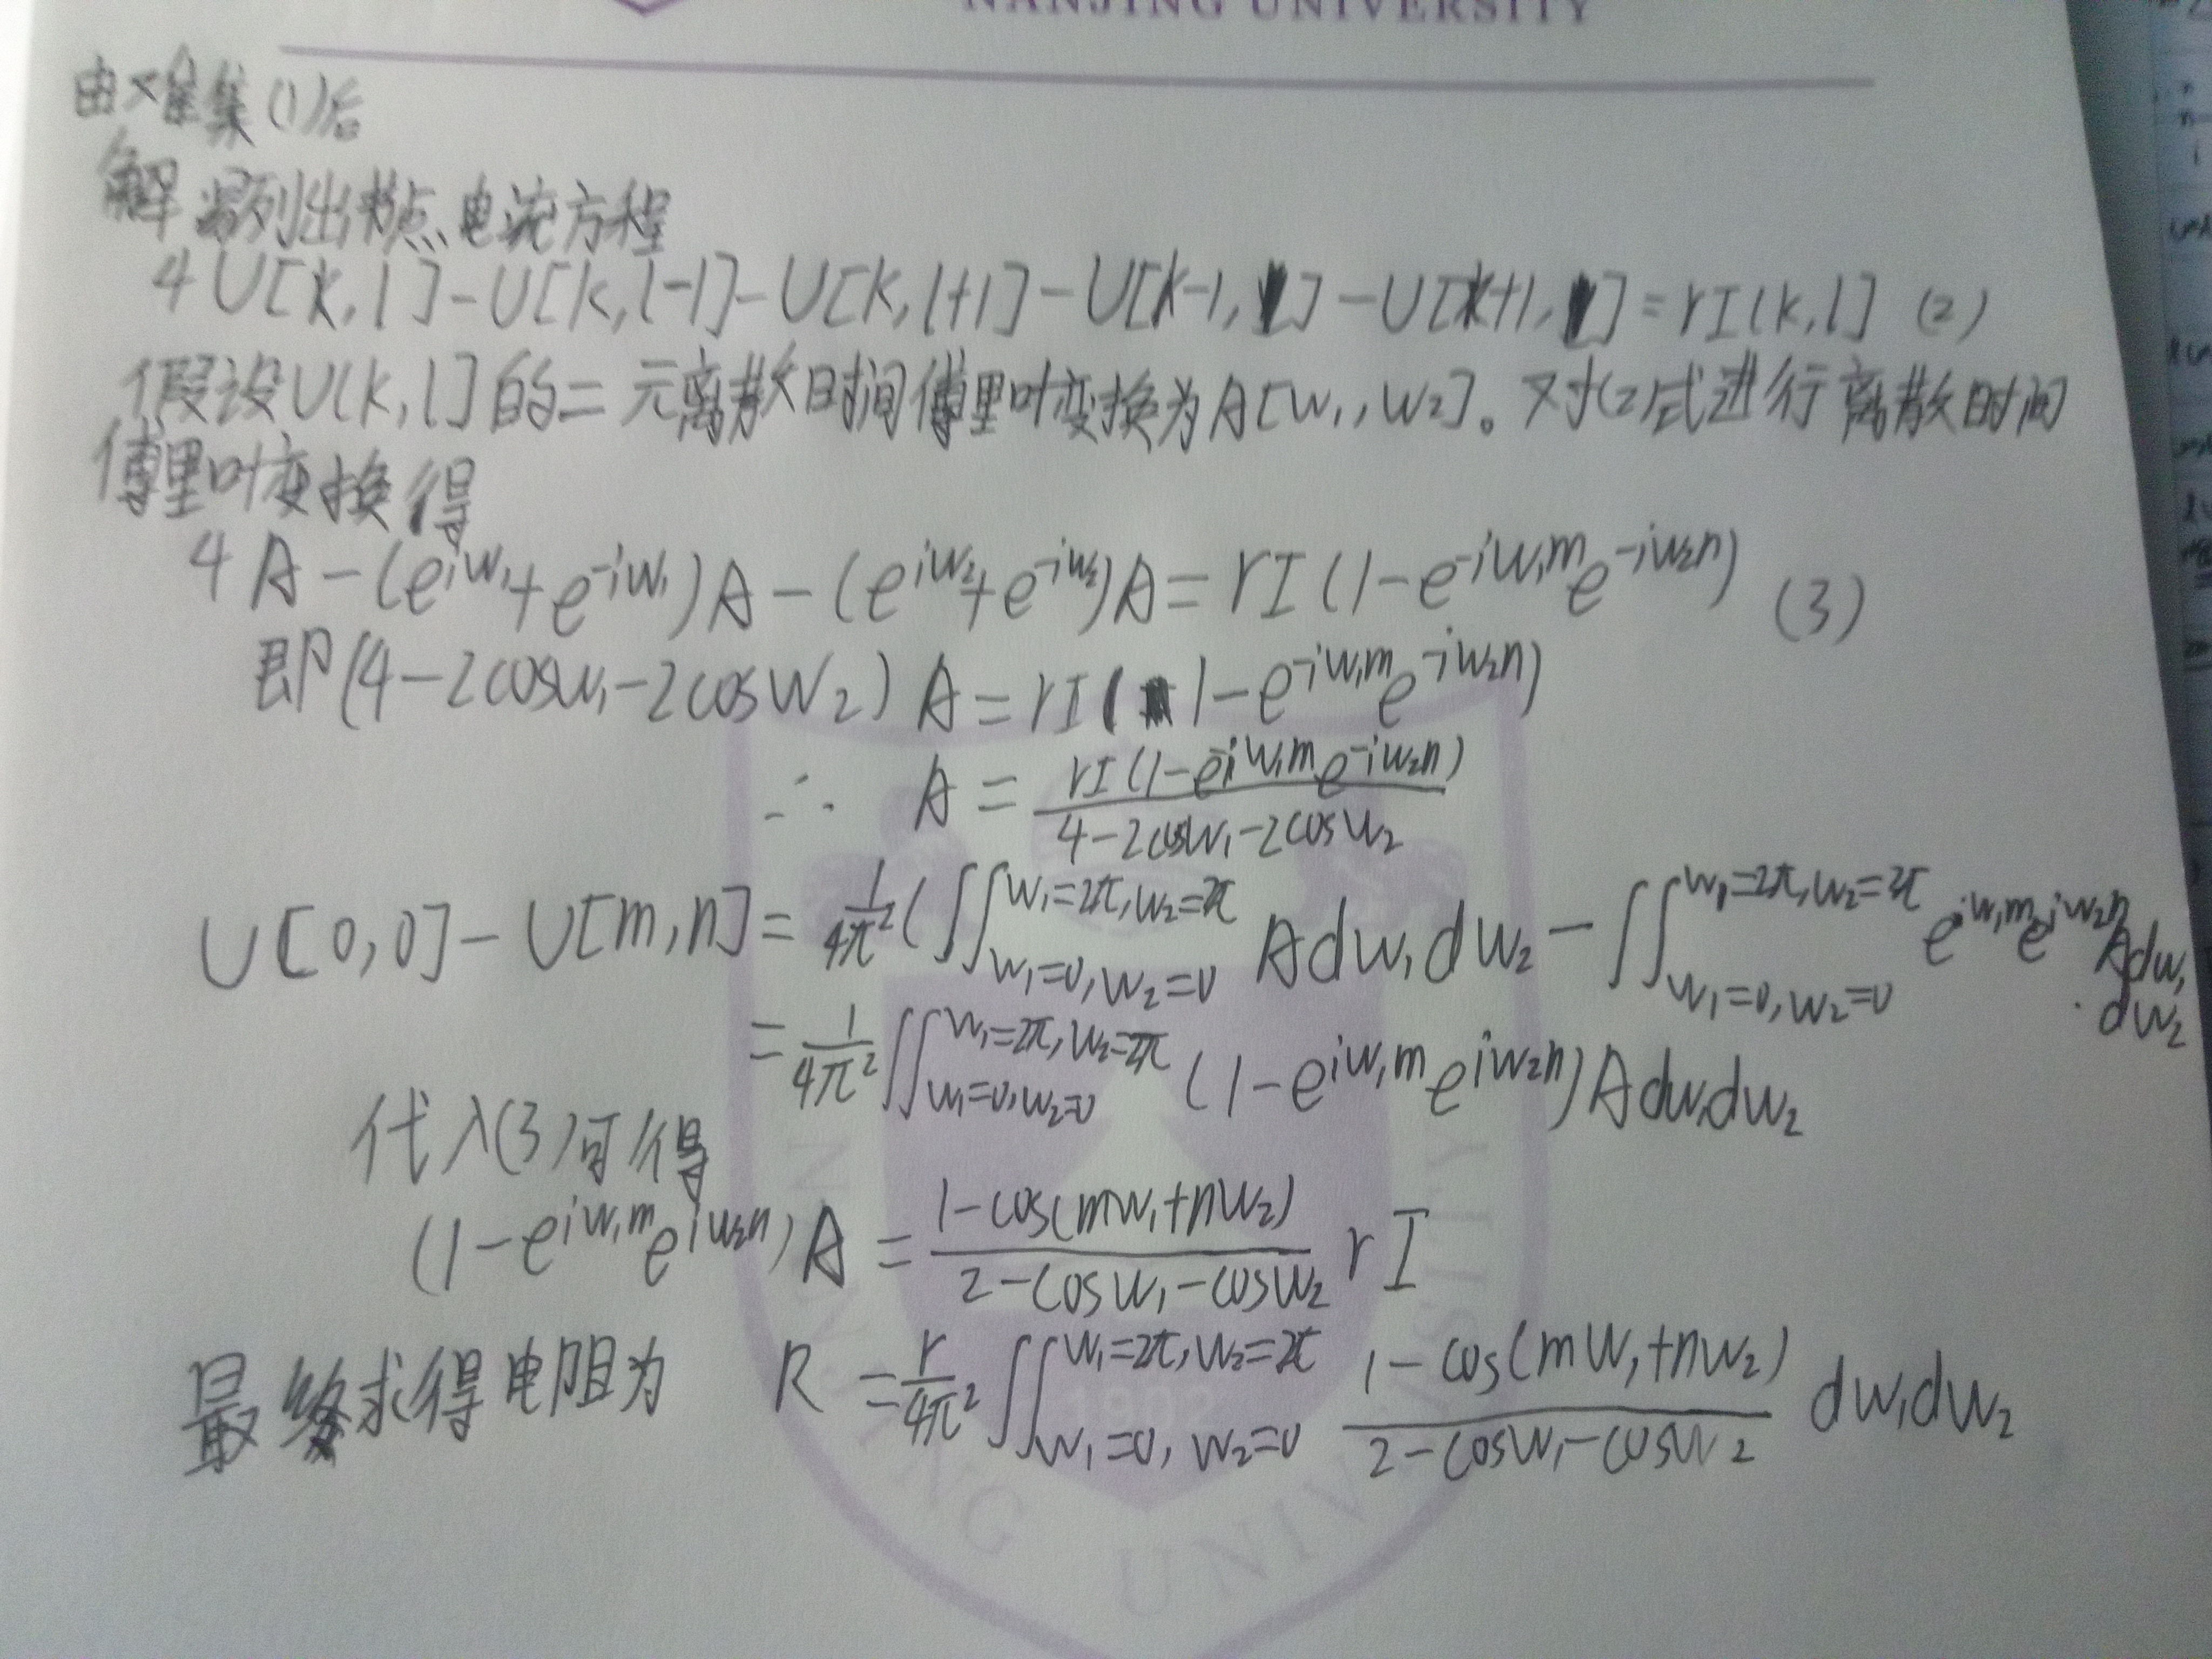 NANJING UNIVERSITY
由 集(1)后
解 列出节点电流方程
4U[k,l]-U[k,l-1]-U[k,l+1]-U[k-1,l]-U[k+1,l]=rI[k,l] (2)
假设U[k,l]的二元离散时间傅里叶变换为A[w₁,w₂]。对(2)式进行离散时间
傅里叶变换得
4A-(e^{iw₁}+e^{-iw₁})A-(e^{iw₂}+e^{-iw₂})A=rI(1-e^{-iw₁m}e^{-iw₂n}) (3)
即(4-2cosw₁-2cosw₂)A=rI(1-e^{-iw₁m}e^{-iw₂n})
∴ A=\frac{rI(1-e^{-iw₁m}e^{-iw₂n})}{4-2cosw₁-2cosw₂}
U[0,0]-U[m,n]=\frac{1}{4π²}(∬_{w₁=0,w₂=0}^{w₁=2π,w₂=2π} Adw₁dw₂-∬_{w₁=0,w₂=0}^{w₁=2π,w₂=2π} e^{iw₁m}e^{iw₂n}Adw₁·dw₂
=\frac{1}{4π²}∬_{w₁=0,w₂=0}^{w₁=2π,w₂=2π}(1-e^{iw₁m}e^{iw₂n})Adw₁dw₂
代入(3)可得
(1-e^{iw₁m}e^{iw₂n})A=\frac{1-cos(mw₁+nw₂)}{2-cosw₁-cosw₂}rI
最终求得电阻为 R=\frac{r}{4π²}∬_{w₁=0,w₂=0}^{w₁=2π,w₂=2π}\frac{1-cos(mw₁+nw₂)}{2-cosw₁-cosw₂}dw₁dw₂
1902
NANJING UNIVERSITY